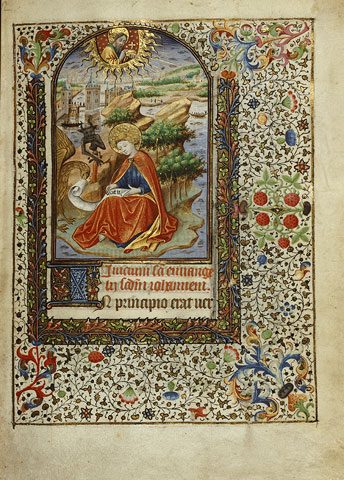 Inicium sc̄i euuange
lii scd̄m iohannem.
IN principio erat uer